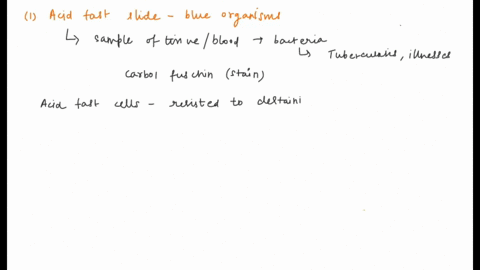 (1) Acid fast slide - blue organisms
↳ sample of tissue/blood → bacteria
↳ Tuberculosis, illnesses
Carbol fuschin (stain)
Acid fast cells - resisted to destaini